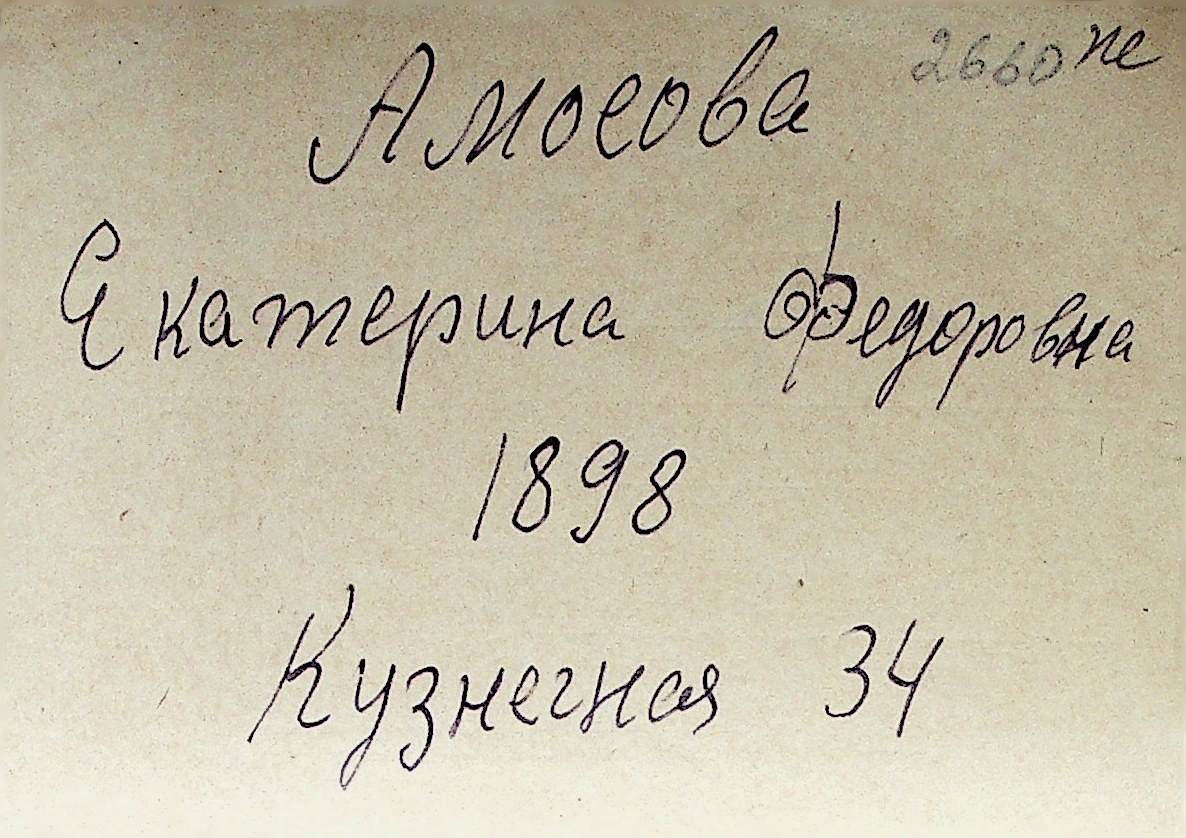 2660 пе
Амосова
Екатерина Федоровна
1898
Кузнечная 34